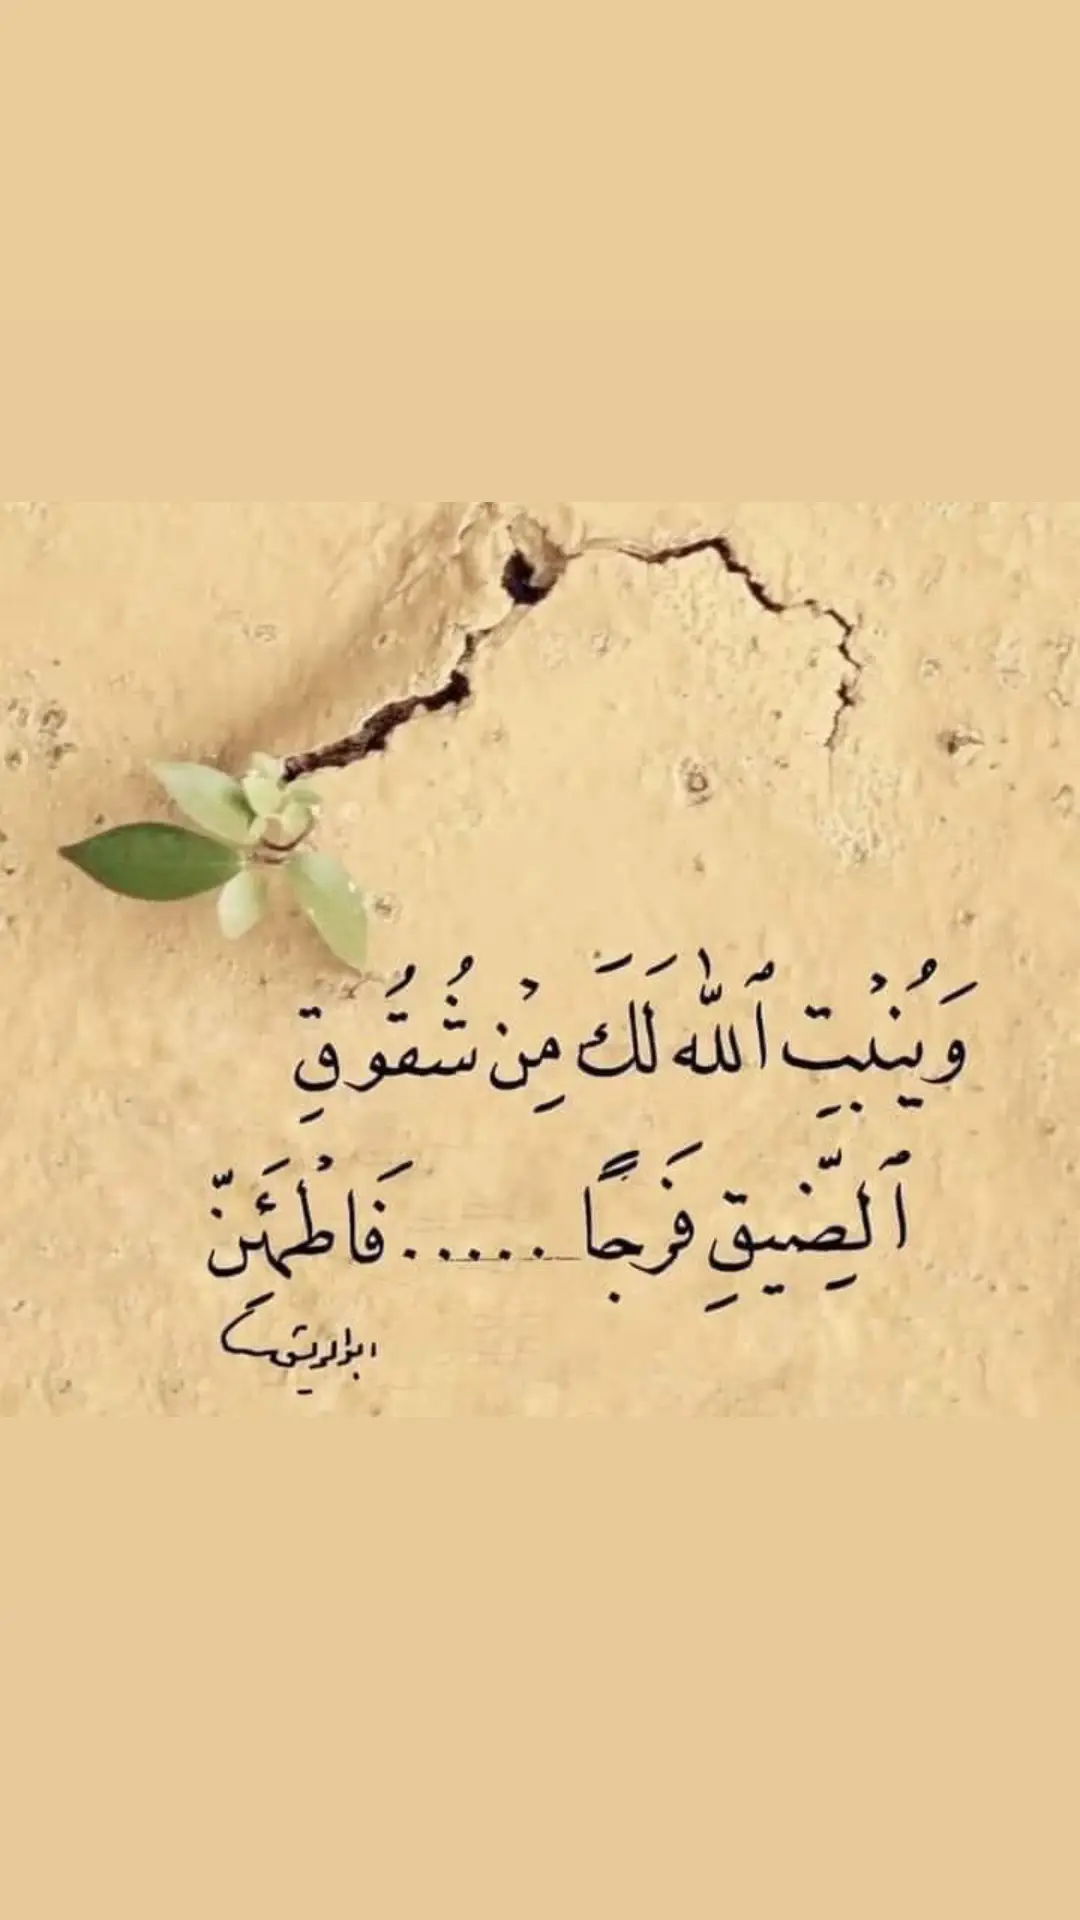 وَيُنْبِتِ ٱللّٰه لَكَ مِنْ شُقُوقِ
ٱلضِّيقِ فَرَجًا ..... فَاطْمَئِنّ